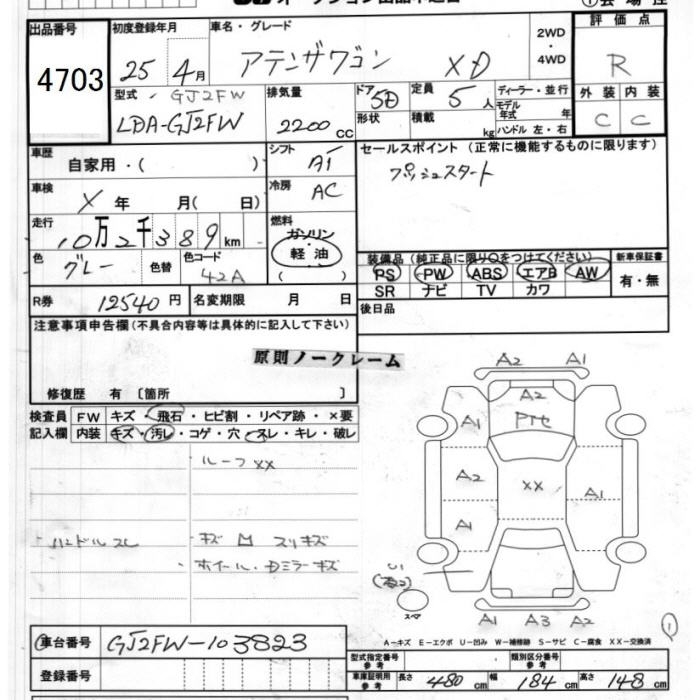 出品番号
4703
初度登録年月
25 4月
車名・グレード
アテンザワゴン XD
2WD
・
4WD
評価点
R
外装 内装
C C
型式 GJ2FW
LDA-GJ2FW
排気量
2200 CC
ドア 5D
形状
定員 5人
積載 kg
ディーラー・並行
モデル年式 年
ハンドル 左・右
車歴
自家用・( )
シフト AT
セールスポイント (正常に機能するものに限ります)
プッシュスタート
車検
X 年 月( 日)
冷房 AC
走行
10万2千389km
燃料
ガソリン
軽油
( )
色 グレー 色替
色コード 42A
装備品 (純正品に限り○をつけてください)
PS PW ABS エアB AW
SR ナビ TV カワ
新車保証書
有・無
R券 12540円
名変期限 月 日
後日品
注意事項申告欄(不具合内容等は具体的に記入して下さい)
原則ノークレーム
修復歴 有 〔箇所 〕
検査員
記入欄
FW キズ・飛石・ヒビ割・リペア跡・×要
内装 キズ・汚レ・コゲ・穴・スレ・キレ・破レ
ルーフXX
ハンドルスレ
キズ 凹 スリキズ
ホイール・Dミラーキズ
A2 A1
A2
A1
A2
XX
A1
A1
スペア
A1 A3 A2
1
A-キズ E-エクボ U-凹み W-補修跡 S-サビ C-腐食 XX-交換済
車台番号 GJ2FW-103823
登録番号
型式指定番号
参考
類別区分番号
参考
車庫証明用
参考
長さ 480cm 幅 184cm 高さ 148cm